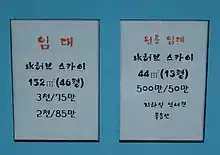 임대
sk허브 스카이
152㎡(46평)
3천/75만
2천/85만
원룸 임대
sk허브 스카이
44㎡(13평)
500만/50만
지하철 역세권
풀옵션